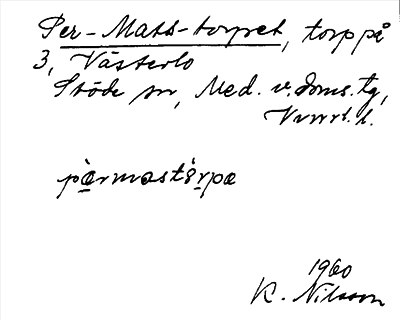 Per-Mats-torpet, torp på
3, Västerlo
Stöde sn, Med. v. doms. tg,
Vnrrl. l.
pàrmastårpa
1960
K. Nilsson